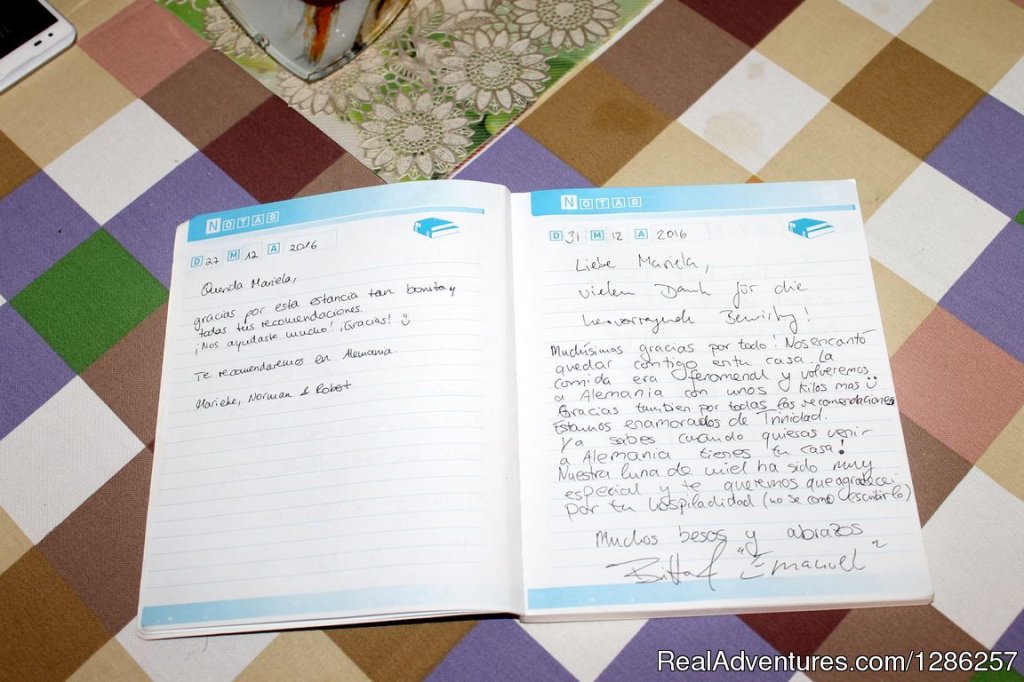 NOTAS
D 27 M 12 A 2016
Querida Mariela,
gracias por esta estancia tan bonita y
todas tus recomendaciones.
¡Nos ayudaste mucho! ¡Gracias! :)
Te recomendaremos en Alemania.
Marieke, Norman & Robert
NOTAS
D 31 M 12 A 2016
Liebe Mariela,
vielen Dank für die
hervorragende Bewirtung!
Muchísimas gracias por todo! Nos encantó
quedar contigo en tu casa. La
comida era fenomenal y volveremos
a Alemania con unos kilos mas :)
Gracias tambien por todas las recomendaciones
Estamos enamorados de Trinidad.
Ya sabes cuando quieras venir
a Alemania tienes tu casa!
Nuestra luna de miel ha sido muy
especial y te queremos que agradecer
por tu hospiladidad (no se como describirlo)
Muchos besos y abrazos
"Emanuel"
RealAdventures.com/1286257